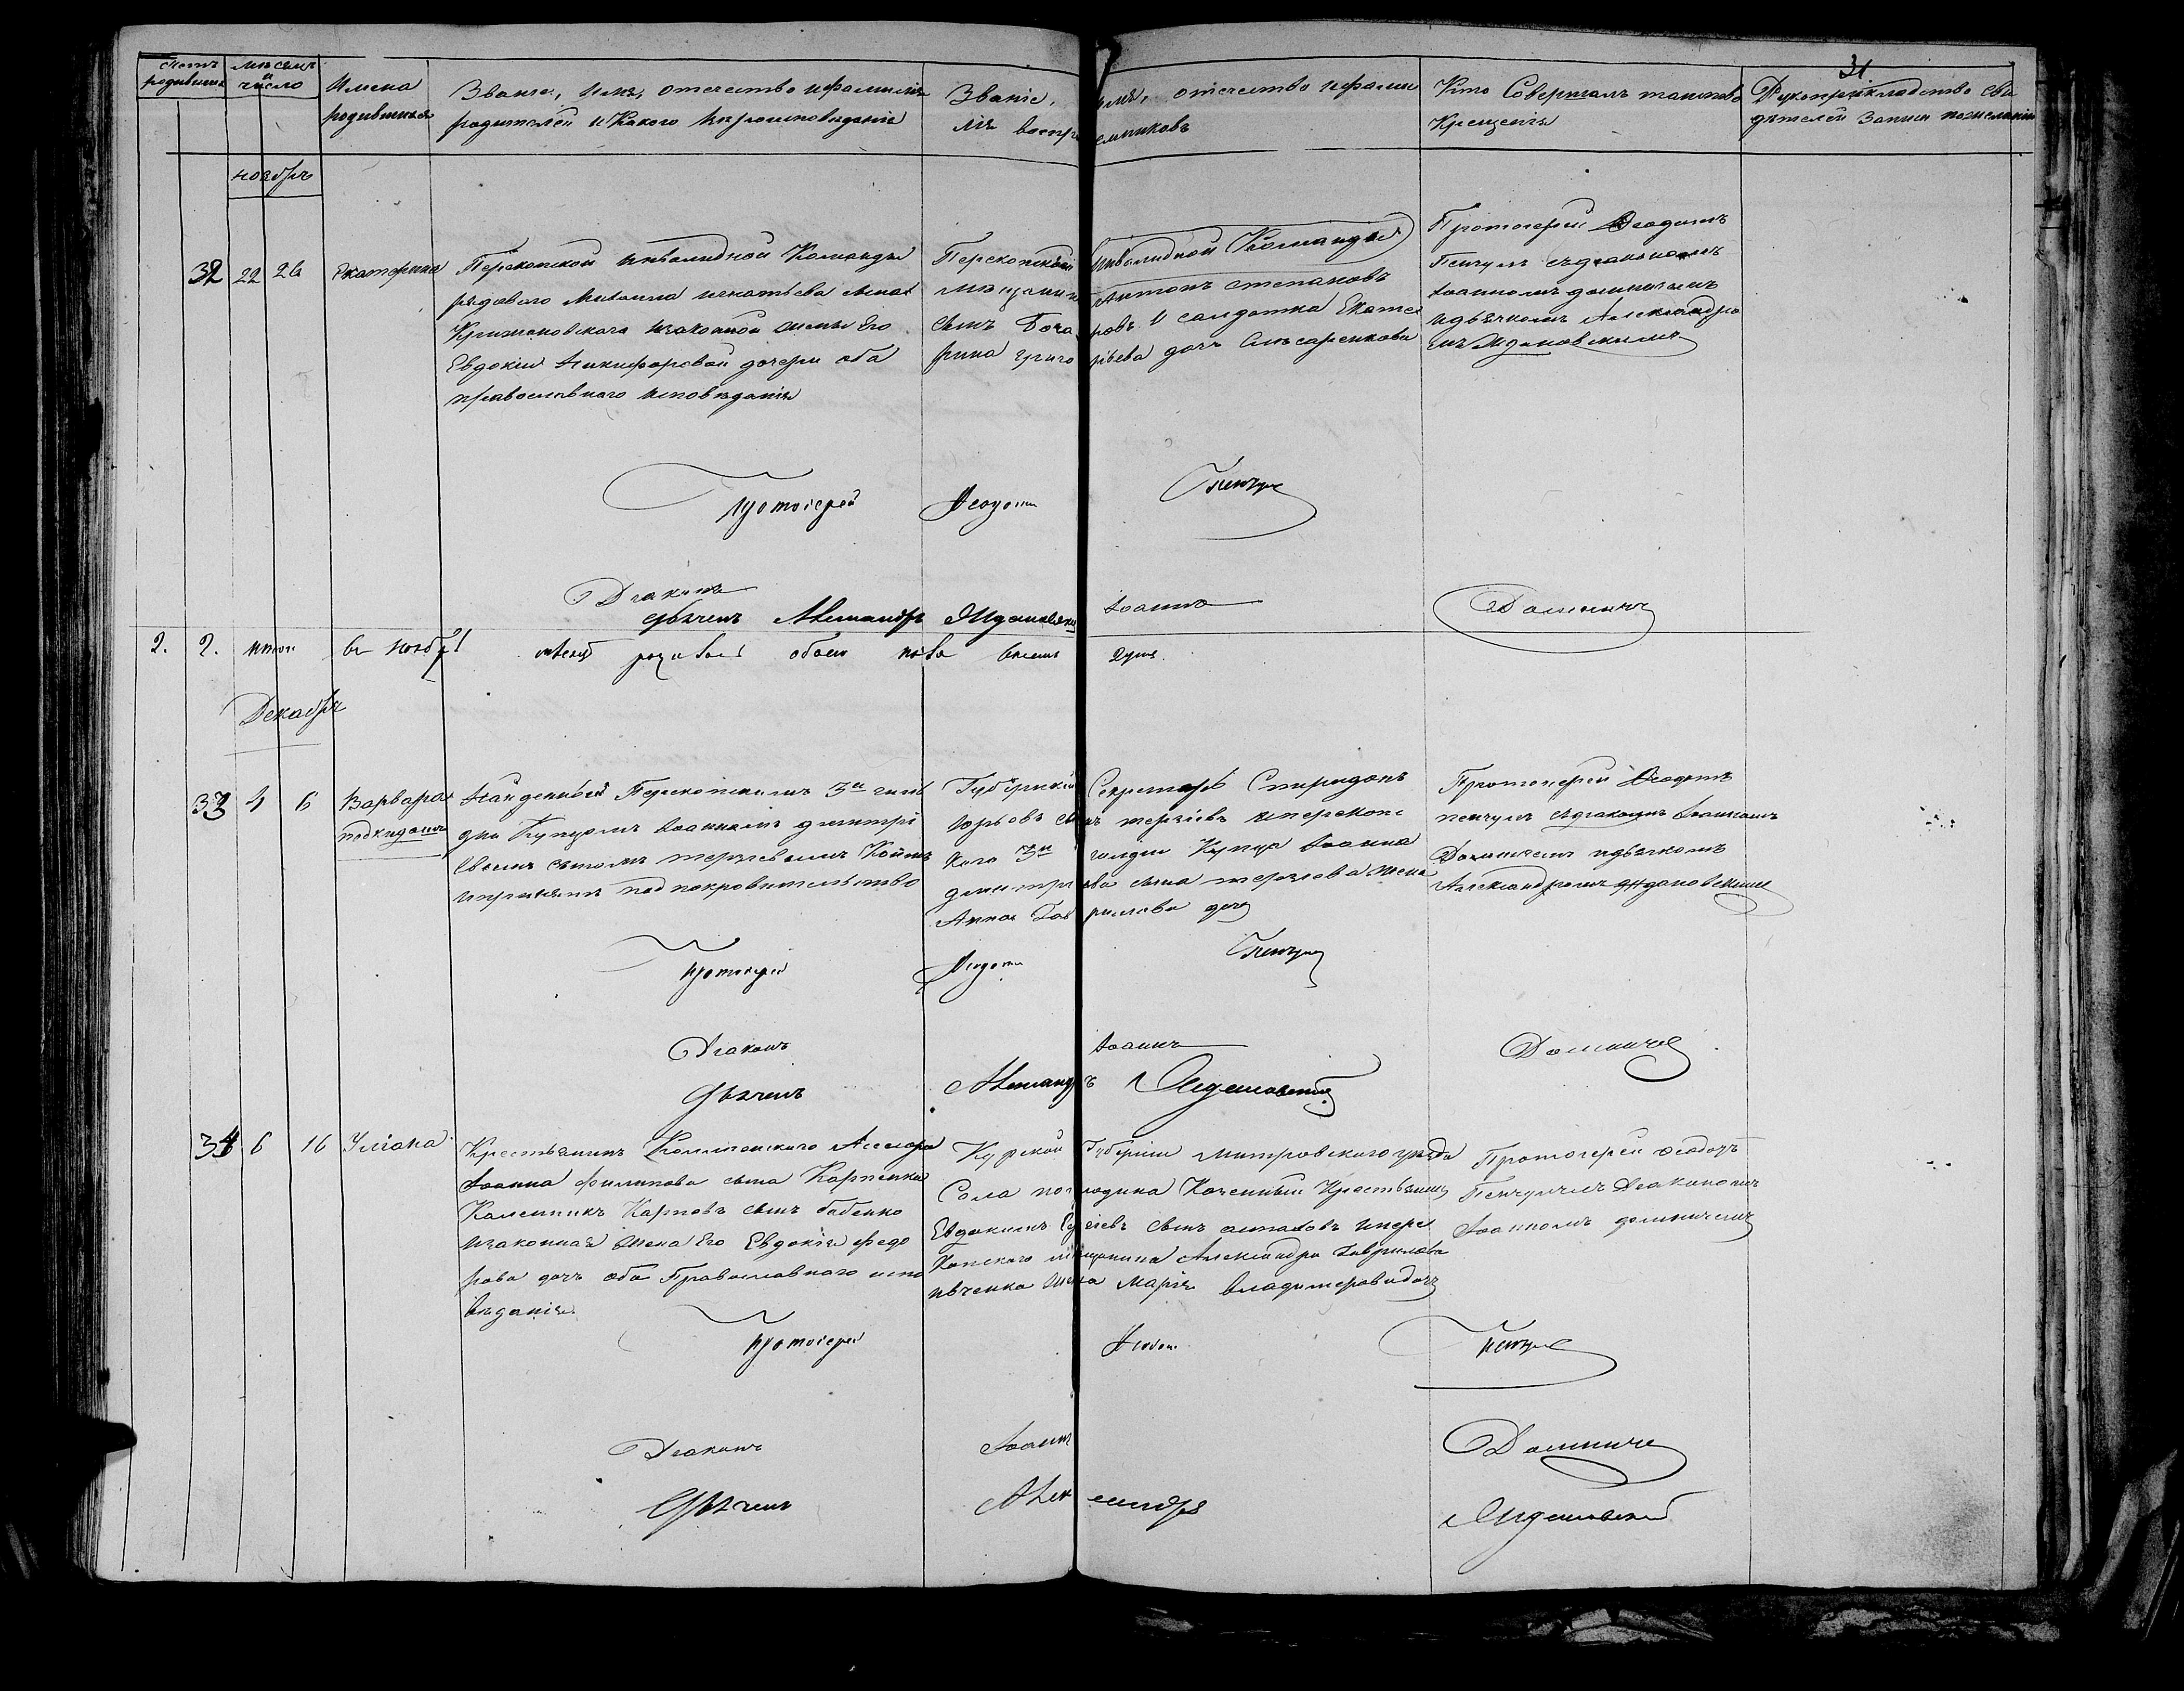 31
Счетъ родившихъ
мѣсяцъ и число
Имена родившихся
Званіе, имя, отечество и фамилія
родителей и какого вѣроисповѣданія
Званіе, имя, отечество и фамилія
воспріемниковъ
Кто Совершалъ таинство
Крещенія
Рукоприкладство сви
дѣтелей записи по желанію
ноябрь
32 22 26 Екатерина
Перекопской инвалидной Команды
рядоваго Михаила Игнатьева сына
Крижановскаго и законной жены Его
Евдокіи Никифоровой дочери оба
православнаго исповѣданія
Перекопской инвалидной Команды
мѣщанинъ Антонъ Степановъ
сынъ Бочаровъ и солдатка Екате
рина Григорьева дочь Слѣсаренкова
Протоіерей Феодотъ
Пенчулъ съ діакономъ
Іоанномъ
и дьячкомъ Александро
мъ Ждановскимъ
Протоіерей Феодотъ Пенчулъ
Діаконъ Іоаннъ
Дьячекъ Александръ Ждановскій
2. 2. итого въ ноябрѣ родилось обоего пола душъ
Декабрь
33 4 6 Варвара
подкидышъ
Найденный Перекопскимъ 3й гиль
діи Купцомъ Іоанномъ Димитрі
евымъ сыномъ
и принятъ под покровительство
Губернскій Секретарь Спиридонъ
Юрьевъ сынъ и перекопс
каго 3й гилдіи Купца Іоанна
Димитріева сына жена
Анна Гаврилова дочь
Протоіерей Феодотъ
Пенчулъ съ діакономъ Іоанномъ
и дьячкомъ
Александромъ Ждановскимъ
Протоіерей Феодотъ Пенчулъ
Діаконъ Іоаннъ
Дьячекъ Александръ Ждановскій
34 6 16 Уліана
Крестьянинъ Коллежскаго Асесора
Іоанна Филипова сына Карпенка
Каленникъ Карповъ сынъ Бабенко
и законная жена Его Евдокія Федо
рова дочь оба Православнаго испо
вѣданія
Курской Губерніи Дмитровскаго уезда
Села Казенный Крестьянинъ
Евдокимъ Сергіевъ сынъ и пере
копскаго мѣщанина Александра Гаврилова
жена Марія Владимерова дочь
Протоіерей Феодотъ
Пенчулъ съ Діакономъ
Іоанномъ
Протоіерей Феодотъ Пенчулъ
Діаконъ Іоаннъ
Дьячекъ Александръ Ждановскій